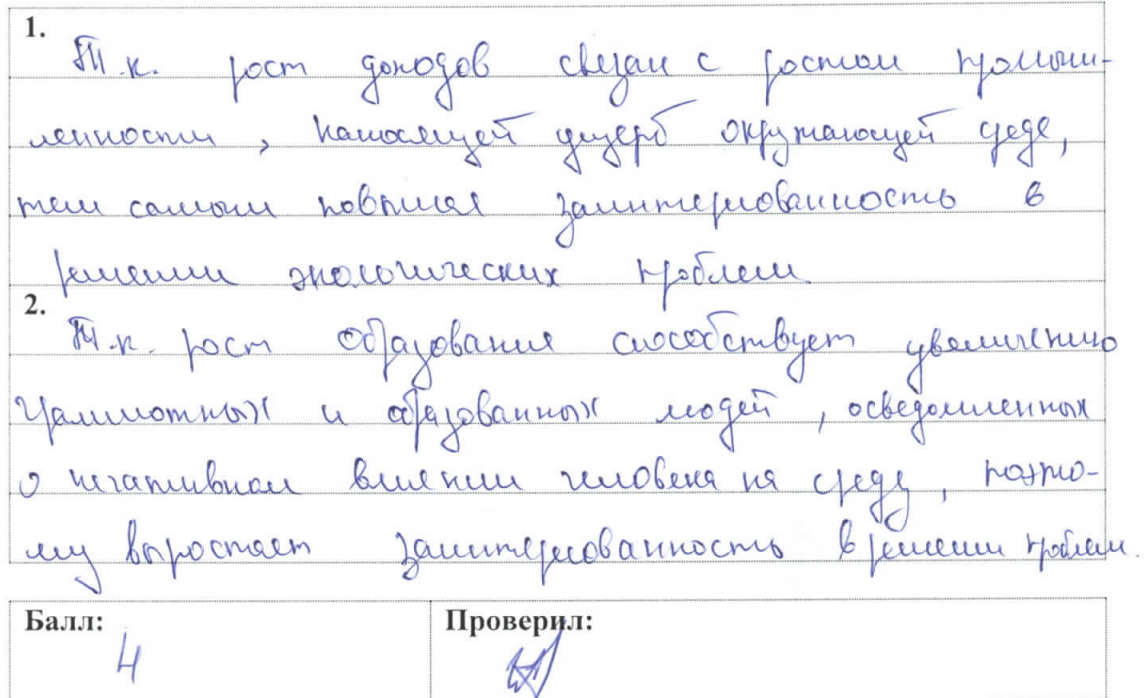 1.
Т.к. рост доходов связан с ростом промыш-
ленности, наносящей ущерб окружающей среде,
тем самым повышая заинтересованность в
решении экологических проблем
2.
Т.к. рост образования способствует увеличению
грамотных и образованных людей, осведомленных
о негативном влиянии человека на среду, поэто-
му выростает заинтересованность в решении проблем.
Балл: Проверил:
4